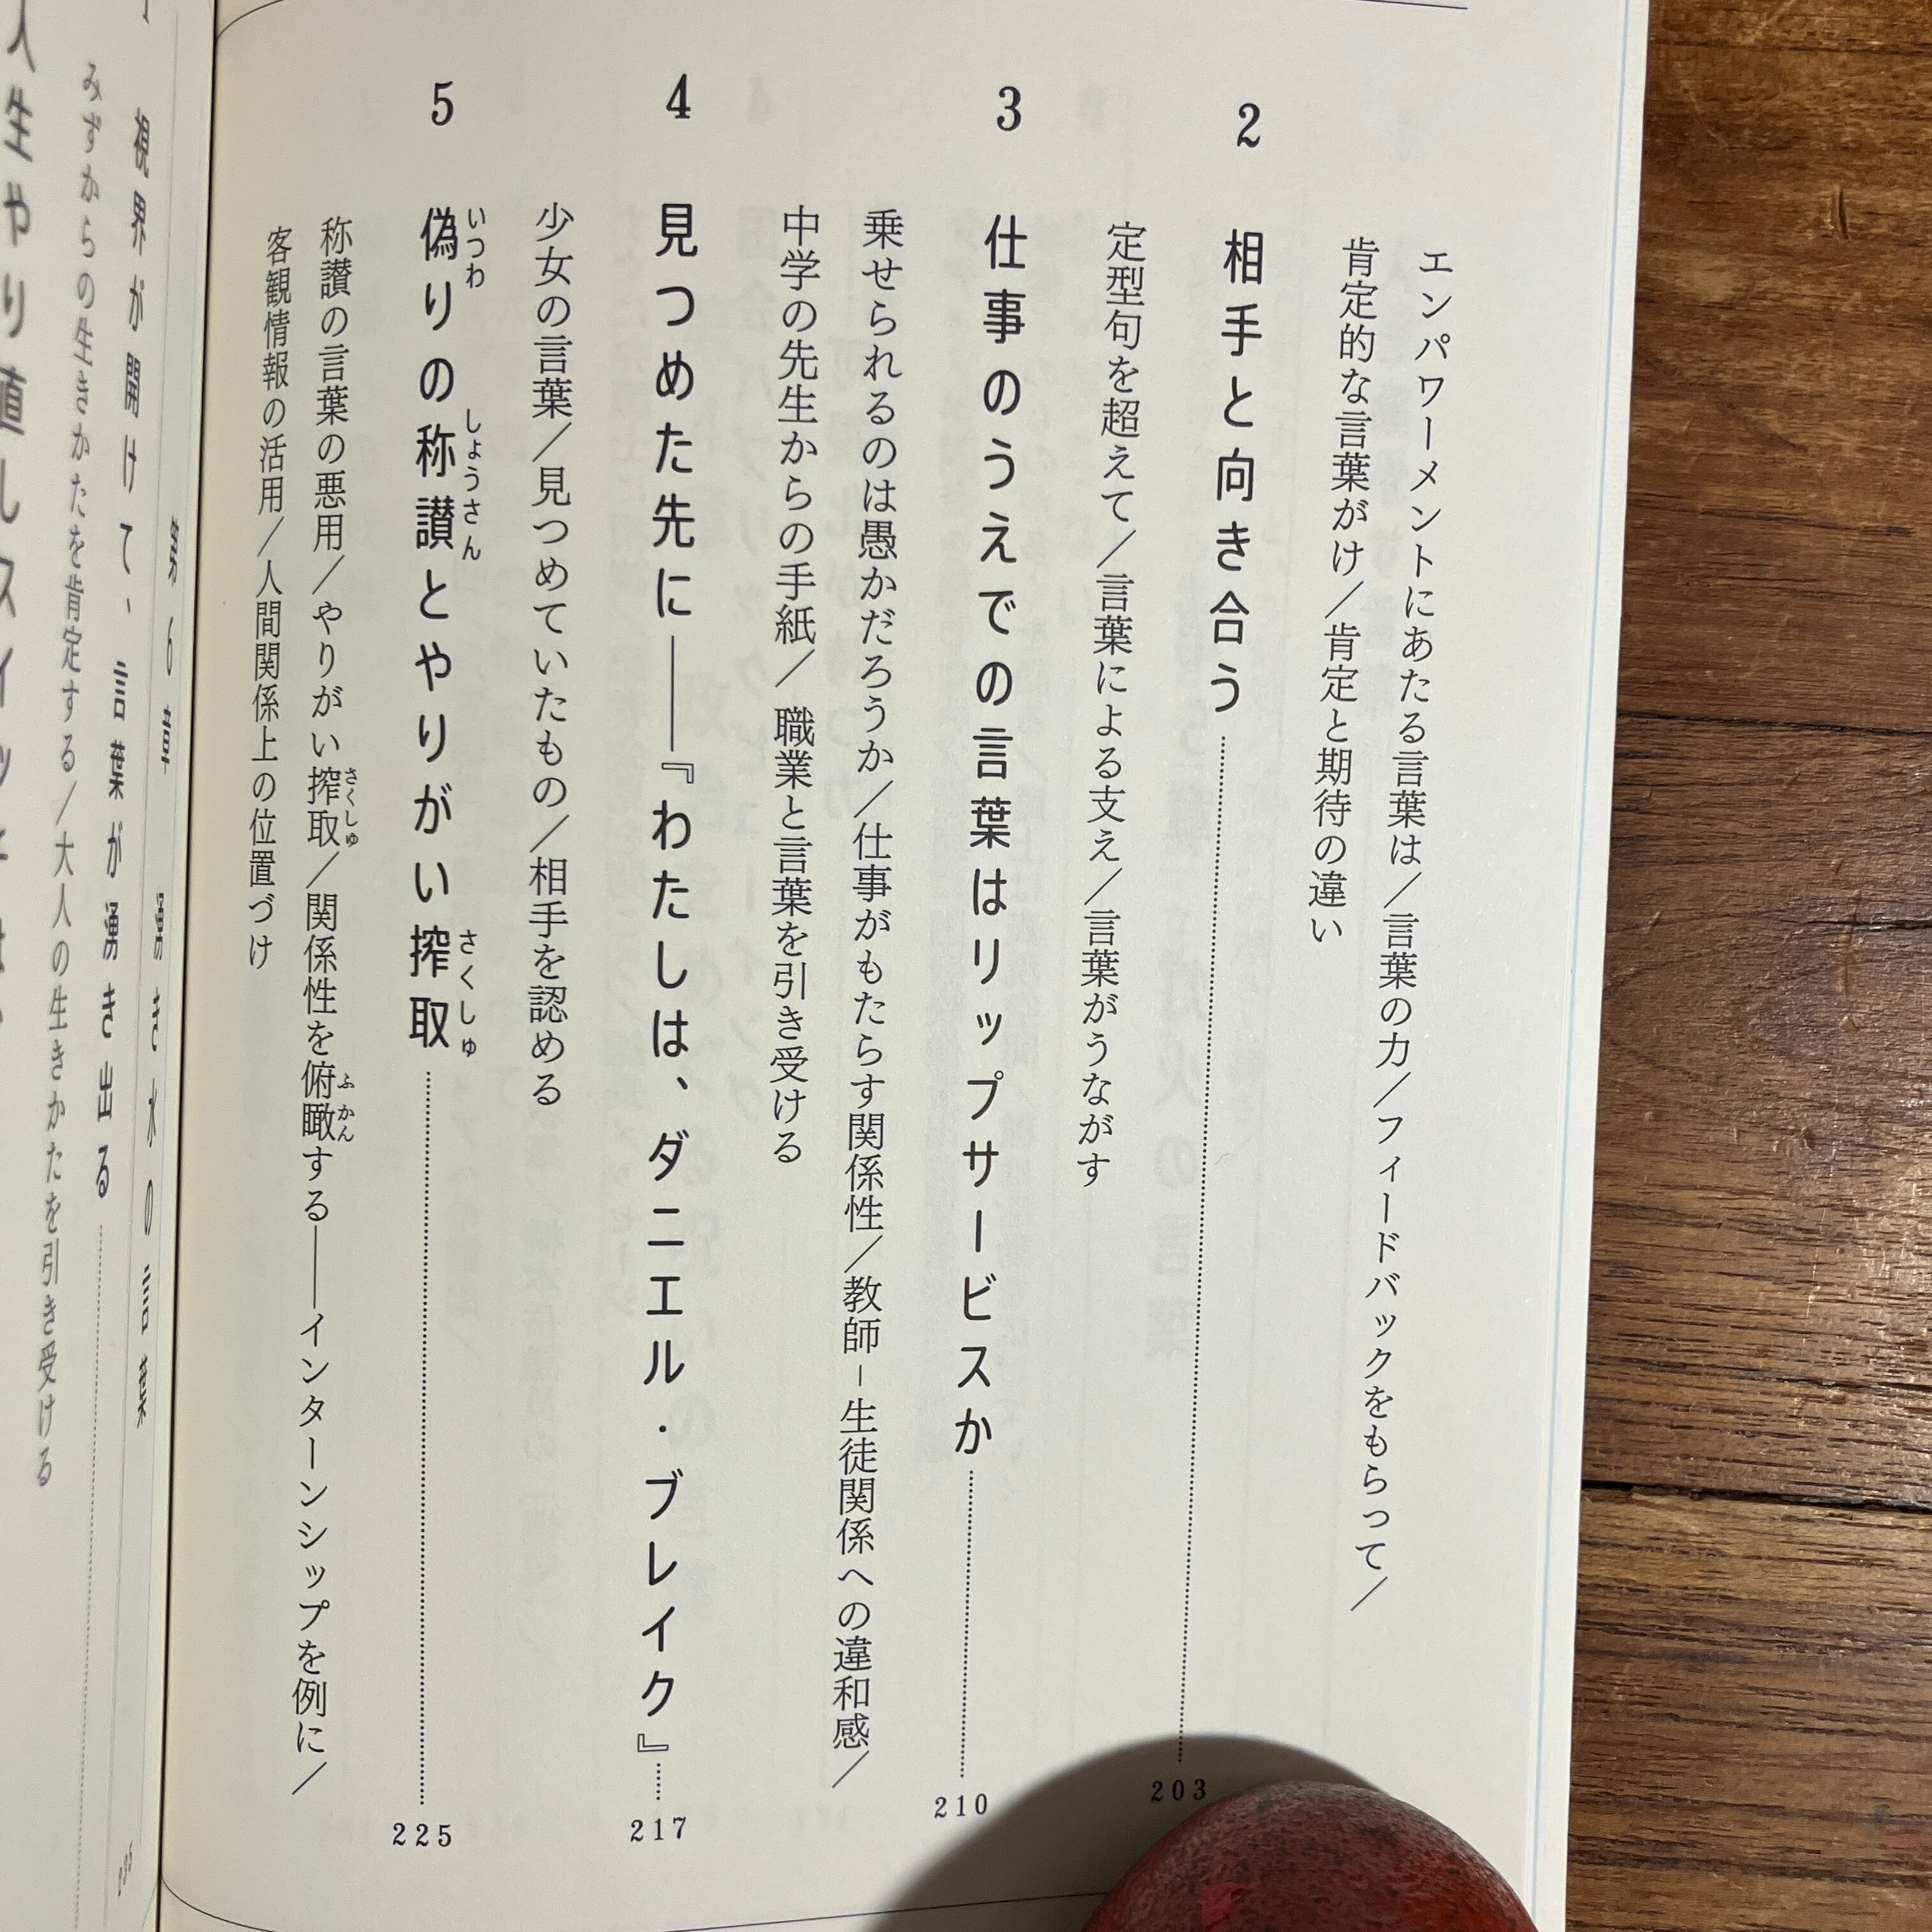 エンパワーメントにあたる言葉は／言葉の力／フィードバックをもらって／
肯定的な言葉がけ／肯定と期待の違い
2　相手と向き合う……203
定型句を超えて／言葉による支え／言葉がうながす
3　仕事のうえでの言葉はリップサービスか……210
乗せられるのは愚かだろうか／仕事がもたらす関係性／教師－生徒関係への違和感／
中学の先生からの手紙／職業と言葉を引き受ける
4　見つめた先に――『わたしは、ダニエル・ブレイク』……217
少女の言葉／見つめていたもの／相手を認める
5　偽りの称讃とやりがい搾取……225
いつわ　しょうさん　さくしゅ
称讃の言葉の悪用／やりがい搾取／関係性を俯瞰する――インターンシップを例に／
さくしゅ　ふかん
客観情報の活用／人間関係上の位置づけ
第6章　湧き水の言葉
視界が開けて、言葉が湧き出る……
みずからの生きかたを肯定する／大人の生きかたを引き受ける
人生やり直しスイッチは